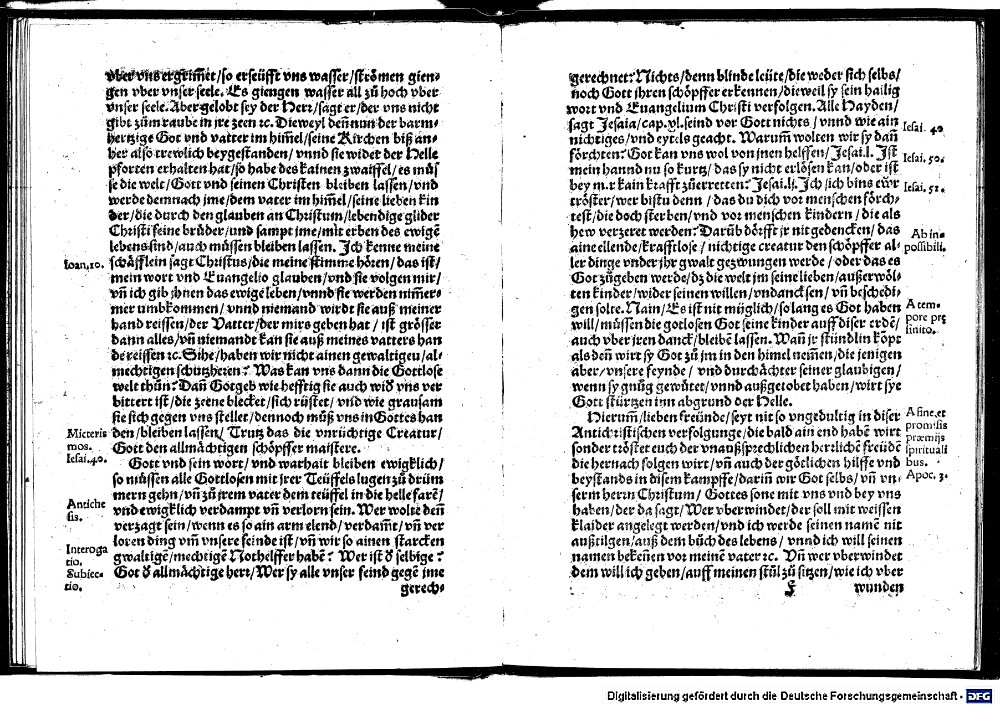 vber vns ergrim̃et/so erseüfft vns wasser/ströͤmen gien-
gen vber vnser seele. Es giengen wasser all zů hoch vber
vnser seele. Aber gelobt sey der Herr/sagt er/der vns nicht
gibt zům raube in jre zeen ꝛc. Dieweyl deñ nun der barm-
hertzige Got vnd vatter im him̃el/seine Kirchen biß an-
her also trewlich beygestanden/vnnd sie wider der Helle
pforten erhalten hat/so habe des kainen zwaiffel/es můs
se die welt/Gott vnd seinen Christen bleiben lassen/vnd
werde demnach jme/dem vater im him̃el/seine lieben kin
der/die durch den glauben an Christum/lebendige glider
Christi seine brüder/und sampt jme/mit erben des ewigẽ
lebens sind/auch müssen bleiben lassen. Ich kenne meine
Ioan.10. schäfflein sagt Christus/die meine stimme hören/das ist/
mein wort vnd Euangelio glauben/vnd sie volgen mir/
vñ ich gib jhnen das ewige leben/vnnd sie werden nim̃er-
mer umbkommen/vnnd niemand wirdt sie auß meiner
hand reissen/der Vatter/der mirs geben hat/ist grösser
dann alles/vñ niemandt kan sie auß meines vatters han
de reissen ꝛc. Sihe/haben wir nicht ainen gewaltigeu/al-
mechtigen schutzherrn? Was kan vns dann die Gottlose
welt thůn? Dañ Got geb wie hefftig sie auch wid vns ver
bittert ist/die zeene blecket/sich rüstet/vnd wie grausam
sie sich gegen vns stellet/dennoch můß vns in Gottes han
Micteris den/bleiben lassen/Trutz das die vnrüchtige Creatur/
mos. Gott den allmächtigen schöpffer maistere.
Iesai.40. Gott vnd sein wort/vnd warhait bleiben ewigklich/
so müssen alle Gottlosen mit jrer Teüffels lugen zů drüm
mern gehn/vñ zů jrem vater dem teüffel in die helle farẽ/
Antiche vnd ewigklich verdampt vñ verlorn sein. Wer wolte deñ
sis. verzagt sein/wenn es so ain arm elend/verdam̃t/vñ ver
loren ding vm̃ vnsere feinde ist/vñ wir so ainen starcken
Interoga gwaltigẽ/mechtigẽ Nothelffer habẽ? Wer ist d̕ selbige?
tio. Got d̕ allmächtige herr/Wer sy alle vnser feind gegẽ jme
Subiec-
tio. gerech-
gerechnet? Nichts/denn blinde leüte/die weder sich selbs/
noch Gott jhren schöpffer erkennen/die weil sy sein hailig
wort vnd Euangelium Christi verfolgen. Alle Hayden/
sagt Jesaia/cap.xl. seind vor Gott nichts/vnnd wie ain Iesai. 40.
nichtiges/vnd eytels geacht. Warum̃ wolten wir sy dañ
förchten? Got kan vns wol von jnen helffen/Jesai.l. Ist Iesai. 50.
mein hannd nu so kurtz/das sy nicht erlösen kan/oder ist
bey mir kain krafft zůerretten? Jesai.lj. Ich/ich bins ewr Iesai. 51.
tröster/wer bistu denn/das du dich vor menschen förch-
test/die doch sterben/vnd vor menschen kindern/die als
hew verzeret werden? Darũb dörfft jr nit gedencken/das Ab im-
aine eilende/krafftlose/nichtige creatur den schöpffer al- possibili.
ler dinge vnder jhr gwalt gezwungen werde/oder das es
Got zůgeben werde/dz die welt jm seine lieben/außerwöl-
ten kinder/wider seinen willen/vndanck sen/vñ beschedi-
gen solte. Nain/Es ist nit müglich/so lang es Got haben A tem-
will/müssen die gotlosen Got seine kinder auff diser erdẽ/ pore prę
auch vber jren danck/bleibẽ lassen. Wañ jr stündlin kõpt finito.
als deñ wirt sy Got zů jm in den himel nem̃en/die jenigen
aber/vnsere feynde/vnd durchächter seiner glaubigen/
wenn sy gnůg gewütet/vnnd außgetobet haben/wirt sye
Gott stürtzen inn abgrund der Helle.
Hierum̃/lieben freünde/seyt nit so vngedultig in diser A fine, et
Antichristischen verfolgunge/die bald ain end habẽ wirt promissis
sonder tröstet euch der vnaußsprechlichen herrlichẽ freüdẽ præmijs
die hernach folgen wirt/vñ auch der götlichen hilffe vnd spirituali
beystands in disem kampffe/dariñ wir Got selbs/vñ vn- bus.
serm herrn Christum/Gottes sone mit vns vnd bey vns Apoc. 3.
haben/der da sagt/Wer vberwindet/der soll mit weissen
klaider angelegt werden/vnd ich werde seinen namẽ nit
außtilgen/auß dem bůch des lebens/vnnd ich will seinen
namen bekeñen vor meinẽ vater ꝛc. Vñ wer vberwindet
dem will ich geben/auff meinen stůl zů sitzen/wie ich vber
wunden
Digitalisierung gefördert durch die Deutsche Forschungsgemeinschaft - DFG